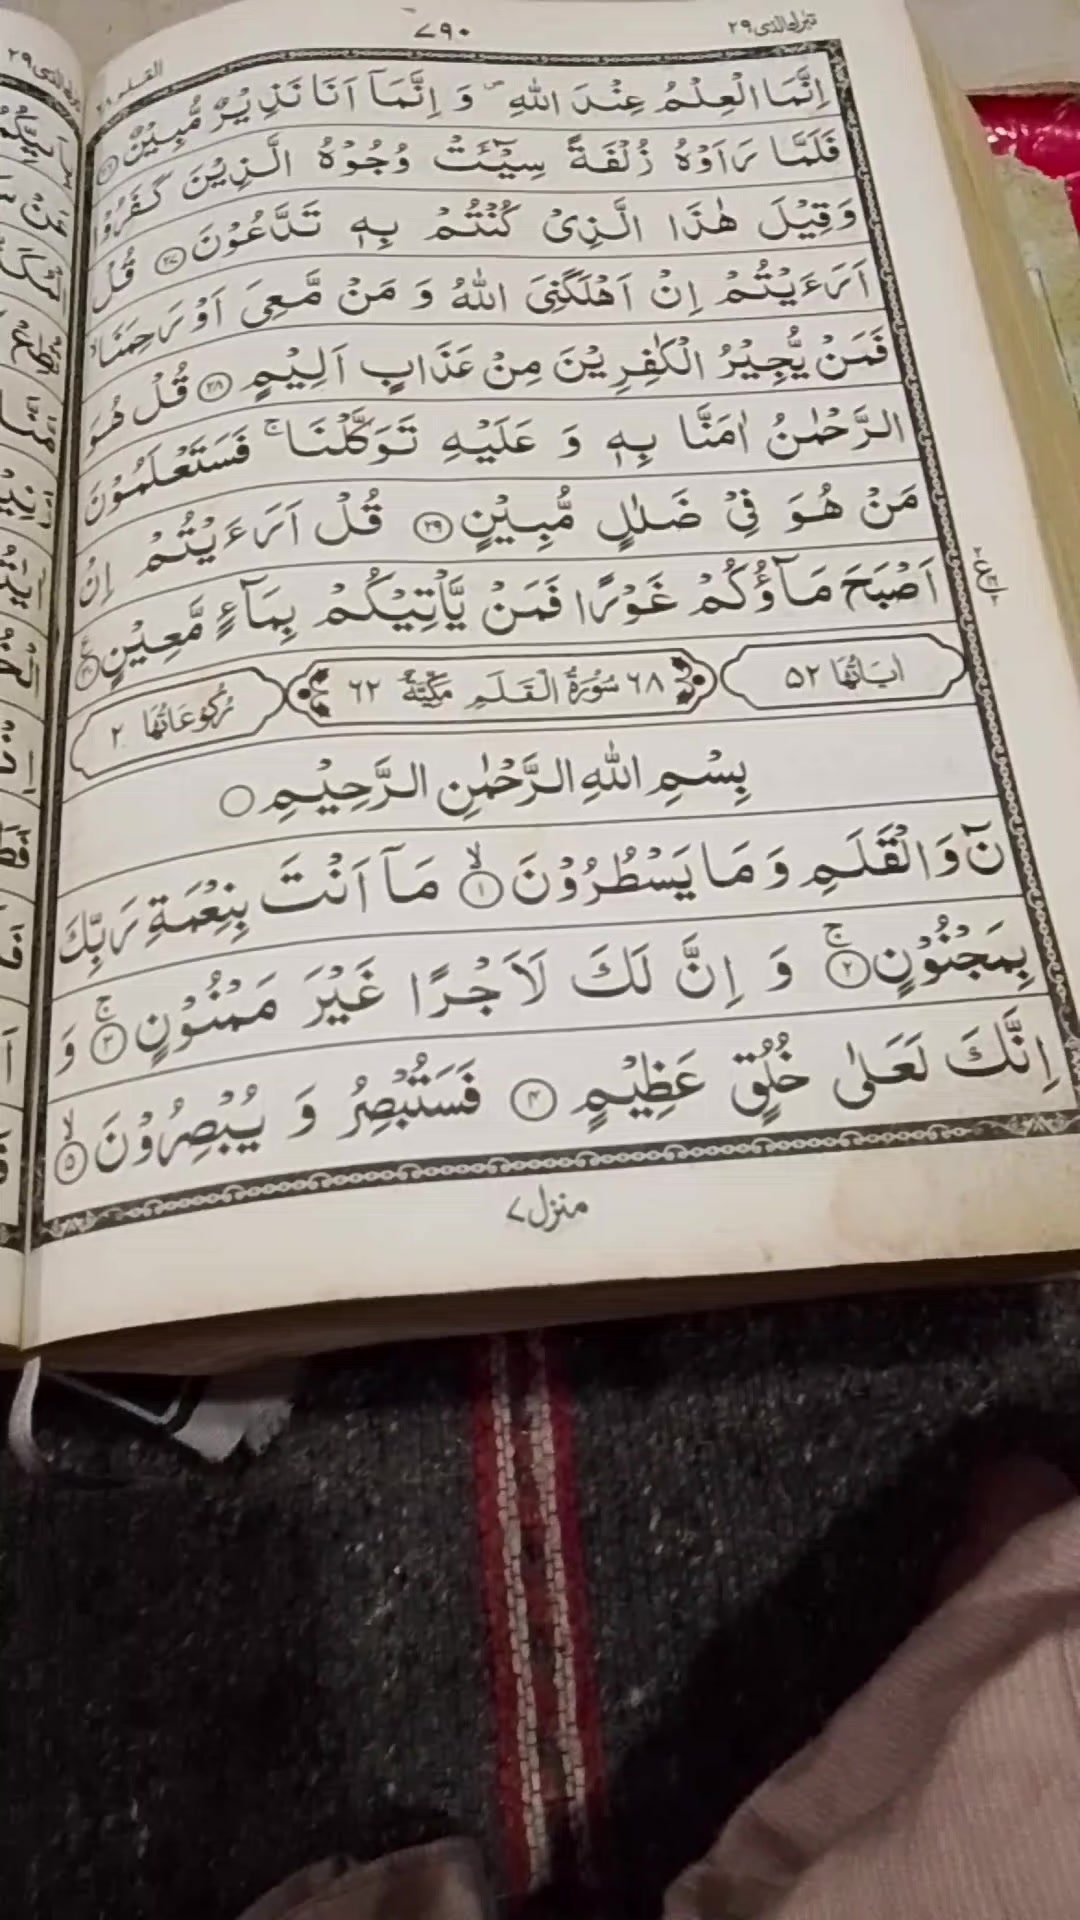 تبٰرك الذی ۲۹
۷۹۰
القلم ۶۸
اِنَّمَا الْعِلْمُ عِنْدَ اللّٰهِ ۪ وَ اِنَّمَاۤ اَنَا نَذِیْرٌ مُّبِیْنٌ ۲۶
فَلَمَّا رَاَوْهُ زُلْفَةً سِیْٓـَٔتْ وُجُوْهُ الَّذِیْنَ كَفَرُوْا
وَقِیْلَ هٰذَا الَّذِیْ كُنْتُمْ بِهٖ تَدَّعُوْنَ ۲۷ قُلْ
اَرَءَیْتُمْ اِنْ اَهْلَكَنِیَ اللّٰهُ وَ مَنْ مَّعِیَ اَوْ رَحِمَنَا ۙ
فَمَنْ یُّجِیْرُ الْكٰفِرِیْنَ مِنْ عَذَابٍ اَلِیْمٍ ۲۸ قُلْ هُوَ
الرَّحْمٰنُ اٰمَنَّا بِهٖ وَ عَلَیْهِ تَوَكَّلْنَا ۚ فَسَتَعْلَمُوْنَ
مَنْ هُوَ فِیْ ضَلٰلٍ مُّبِیْنٍ ۲۹ قُلْ اَرَءَیْتُمْ اِنْ
اَصْبَحَ مَآؤُكُمْ غَوْرًا فَمَنْ یَّاْتِیْكُمْ بِمَآءٍ مَّعِیْنٍ ۳۰
اٰیَاتُهَا ۵۲ ۶۸ سُوْرَةُ الْقَلَمِ مَكِّیَّةٌ ۲ رُكُوْعَاتُهَا ۲
بِسْمِ اللّٰهِ الرَّحْمٰنِ الرَّحِیْمِ
نٓ وَالْقَلَمِ وَ مَا یَسْطُرُوْنَ ۙ ۱ مَاۤ اَنْتَ بِنِعْمَةِ رَبِّكَ
بِمَجْنُوْنٍ ۚ ۲ وَ اِنَّ لَكَ لَاَجْرًا غَیْرَ مَمْنُوْنٍ ۚ ۳ وَ
اِنَّكَ لَعَلٰى خُلُقٍ عَظِیْمٍ ۴ فَسَتُبْصِرُ وَ یُبْصِرُوْنَ ۙ ۵
منزل ۷